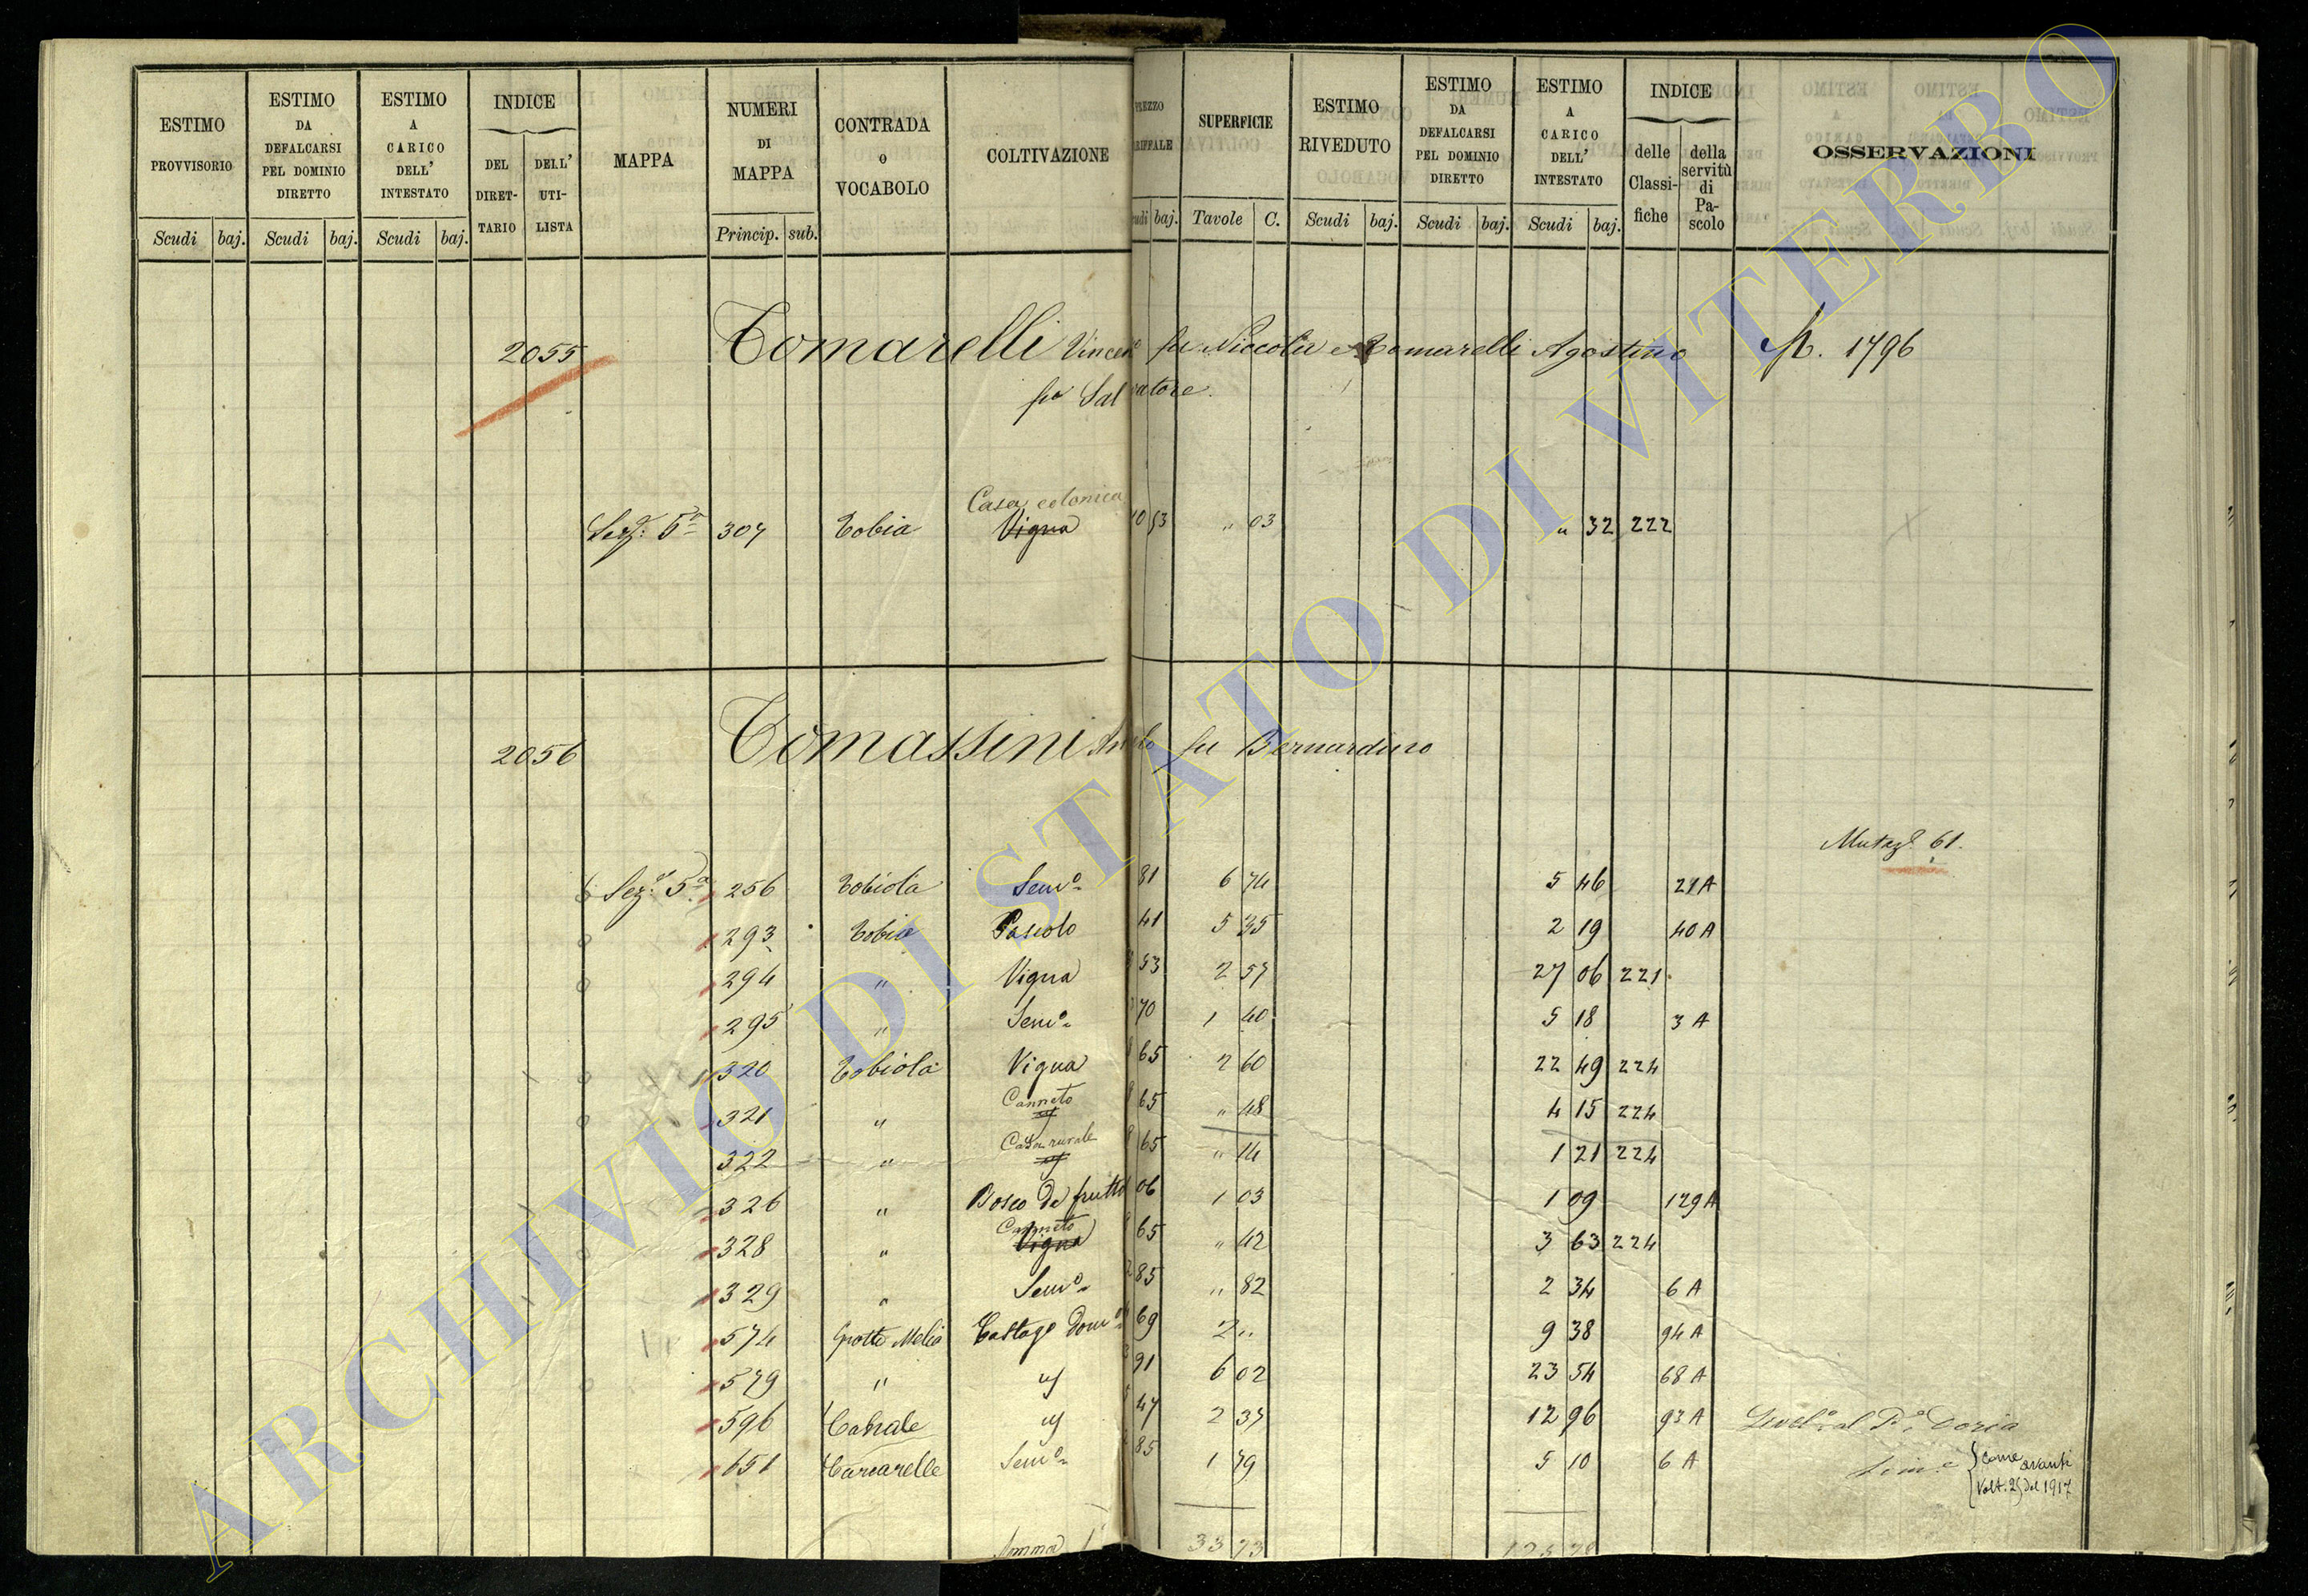 ESTIMO PROVVISORIO
Scudi baj.
ESTIMO DA DEFALCARSI PEL DOMINIO DIRETTO
Scudi baj.
ESTIMO A CARICO DELL' INTESTATO
Scudi baj.
INDICE
DEL DIRET- TARIO
DELL' UTI- LISTA
MAPPA
NUMERI DI MAPPA
Princip. sub.
CONTRADA O VOCABOLO
COLTIVAZIONE
baj.
SUPERFICIE
Tavole C.
ESTIMO RIVEDUTO
Scudi baj.
ESTIMO DA DEFALCARSI PEL DOMINIO DIRETTO
Scudi baj.
ESTIMO A CARICO DELL' INTESTATO
Scudi baj.
INDICE
delle Classi- fiche
della servitù di Pa- scolo
OSSERVAZIONI
2055 Tomarelli Vincen fu Niccola e Tomarelli Agostino 1796
fu Salvatore.
Casa colonica
Sez. 5a 307 Tobia Vigna 10 53 " 03 " 32 222
2056 Tomassini fu Bernardino
Mutaz. 61.
Sez. 5a 256 Tobiola Semo 81 6 74 5 46 21A
293 Tobia Pascolo 41 5 35 2 19 40 A
294 " Vigna 53 2 57 27 06 221
295 " Semo 70 1 40 5 18 3 A
320 Tobiola Vigna 65 2 60 22 49 224
Canneto
321 " 65 " 48 4 15 224
Casa rurale
322 " 65 " 14 1 21 224
326 " Bosco da frutto 06 1 03 1 09 129A
Canneto
328 " Vigna 65 " 42 3 63 224
329 " Semo 85 " 82 2 34 6 A
574 Grotte Melia Castago domo 69 2 " 9 38 94 A
579 " 91 6 02 23 54 68 A
596 47 2 37 12 96 93 A Livelo al Pe Doria
651 Carcarelle Semo 85 1 79 5 10 6 A
come avanti
Volt. 2) del 1917
Somma 33 73
ARCHIVIO DI STATO DI VITERBO